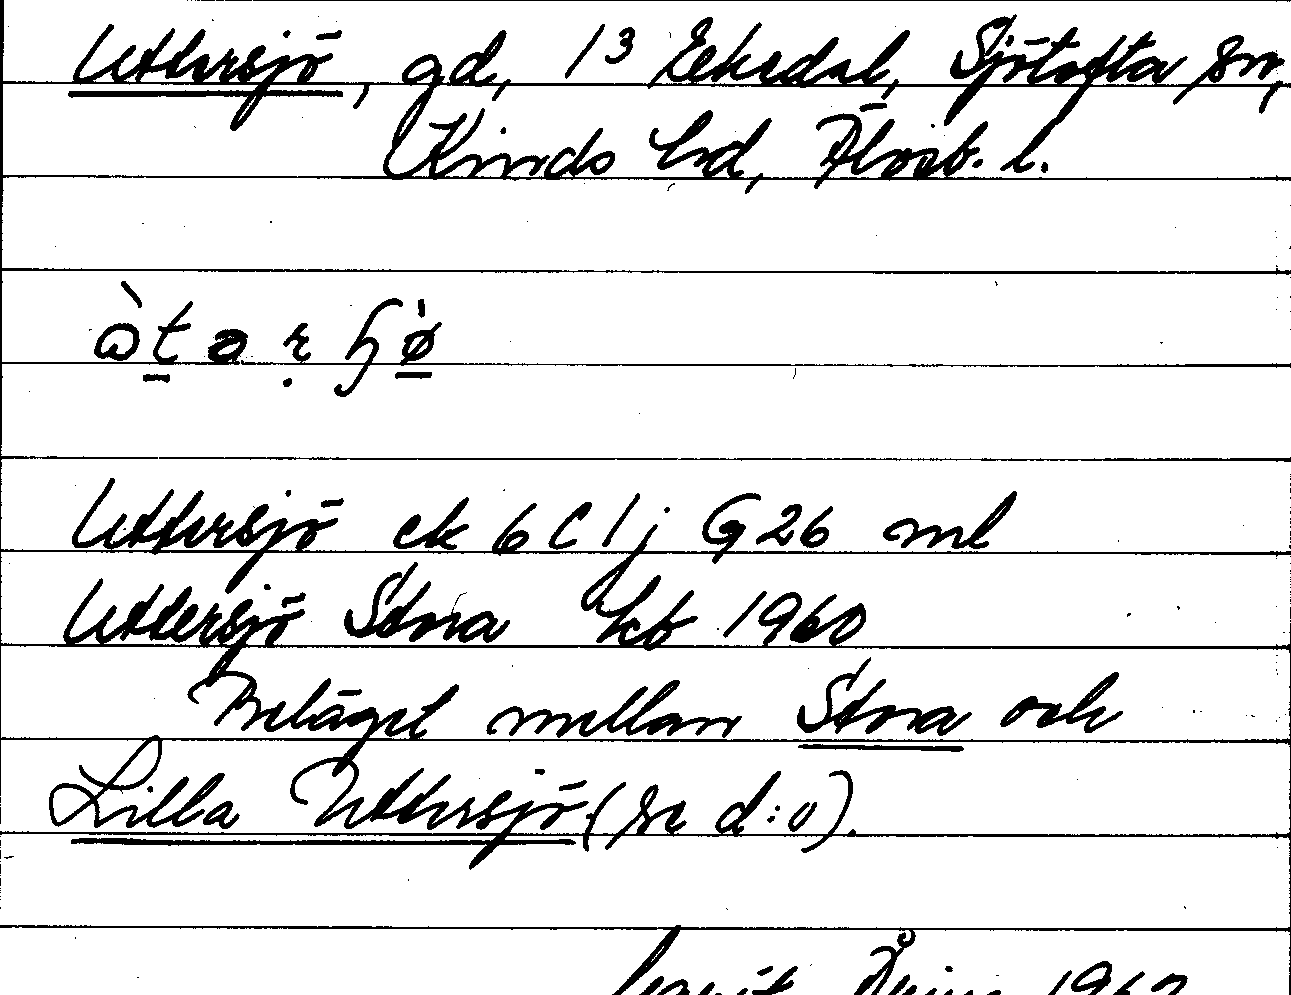 Uttersjö, gd, 13 Ekedal, Sjötofta sn,
Kinds hd, Älvsb. l.
Uttersjö ek 6C1j G26 ml
Uttersjö Stora hcb 1960
Beläget mellan Stora och
Lilla Uttersjö (se d:o).